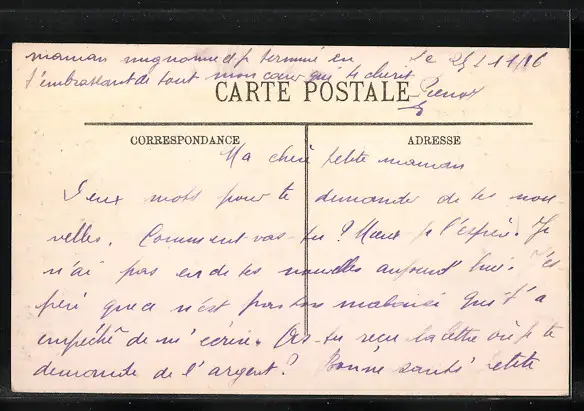 maman mignonne et je termine en
t'embrassant de tout mon cœur qui te chérit
le 25/11/16
Pierrot
CARTE POSTALE
CORRESPONDANCE
ADRESSE
Ma chère petite maman
Deux mots pour te demander de tes nou-
velles. Comment vas-tu? Mieux je l'espère. Je
n'ai pas eu de tes nouvelles aujourd'hui. J'es-
père que ce n'est pas ton malaise qui t'a
empêché de m'écrire. As-tu reçu la lettre où je te
demande de l'argent? Bonne santé petite